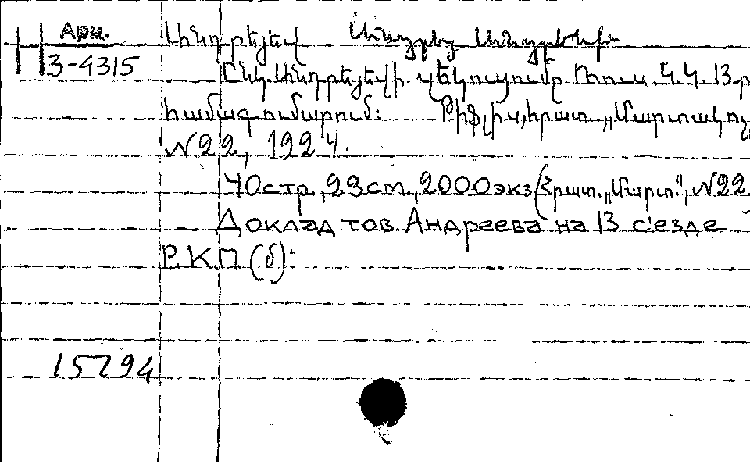 Арм.
3-4315
Անդրեյեվ Անդրեյ Անդրեևիչ
Ընկ. Անդրեյեվի զեկուցումը Ռուս. Կ.Կ. 13-րդ
համագումարում: Թիֆլիս, հրատ. „Մարտակոչ
N22, 1924.
40стр., 23см., 2000экз. (Հրատ. „Մարտ.", N22
Доклад тов. Андреева на 13 с'езде
Р.К.П (б):
15294